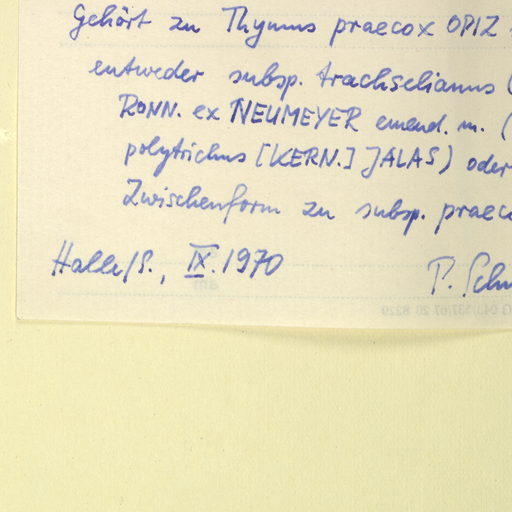 Gehört zu Thymus praecox OPIZ
entweder subsp. trachselianus (
RONN. ex NEUMEYER emend. m. (
polytrichus [KERN.] JALAS) oder
Zwischenform zu subsp. praeco
Halle/S., IX. 1970
P. Schu